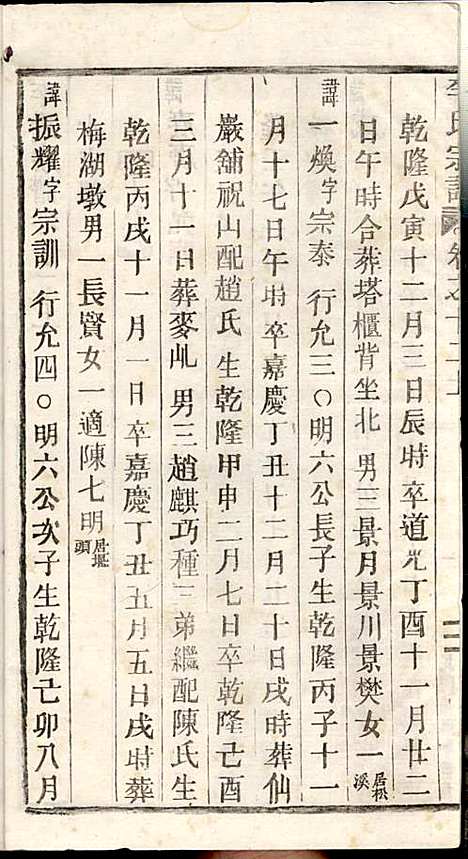 氏宗譜
乾隆戊寅十二月三日辰時卒道光丁酉十一月廿二
日午時合葬塔櫃背坐北 男三景月景川景樊女一居松溪
諱一煥字宗泰 行允三○明六公長子生乾隆丙子十一
月十七日午時卒嘉慶丁丑十二月二十日戌時葬仙
嚴舖祝山配趙氏生乾隆甲申二月七日卒乾隆己酉
三月十一日葬麥乢 男三趙麒巧種三弟繼配陳氏生
乾隆丙戌十一月一日卒嘉慶丁丑五月五日戌時葬
梅湖墩男一長賢女一適陳七明居堪頭
諱振耀字宗訓 行允四○明六公次子生乾隆己卯八月